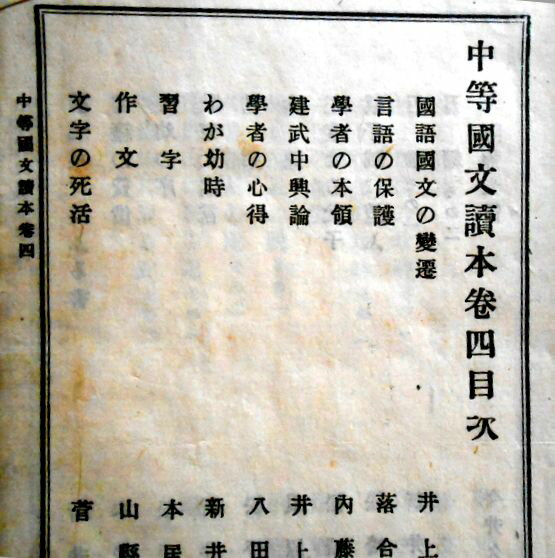 中等國文讀本卷四目次
國語國文の變遷 井上
言語の保護 落合
學者の本領 內藤
建武中興論 井上
學者の心得 八田
わが幼時 新井
習字 本居
作文 山縣
文字の死活 菅
中等國文讀本卷四